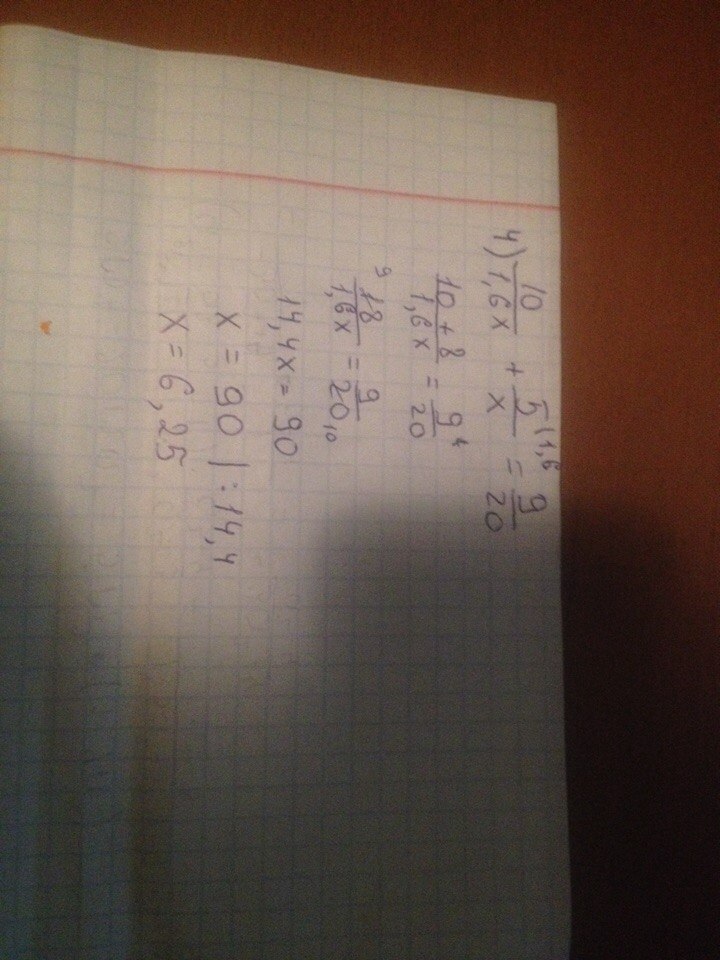 4) 10/1,6x + 5/x |1,6 = 9/20
10 + 8/1,6x = 9/20
9 18/1,6x = 9/20 10
14,4x = 90
x = 90 |:14,4
x = 6,25